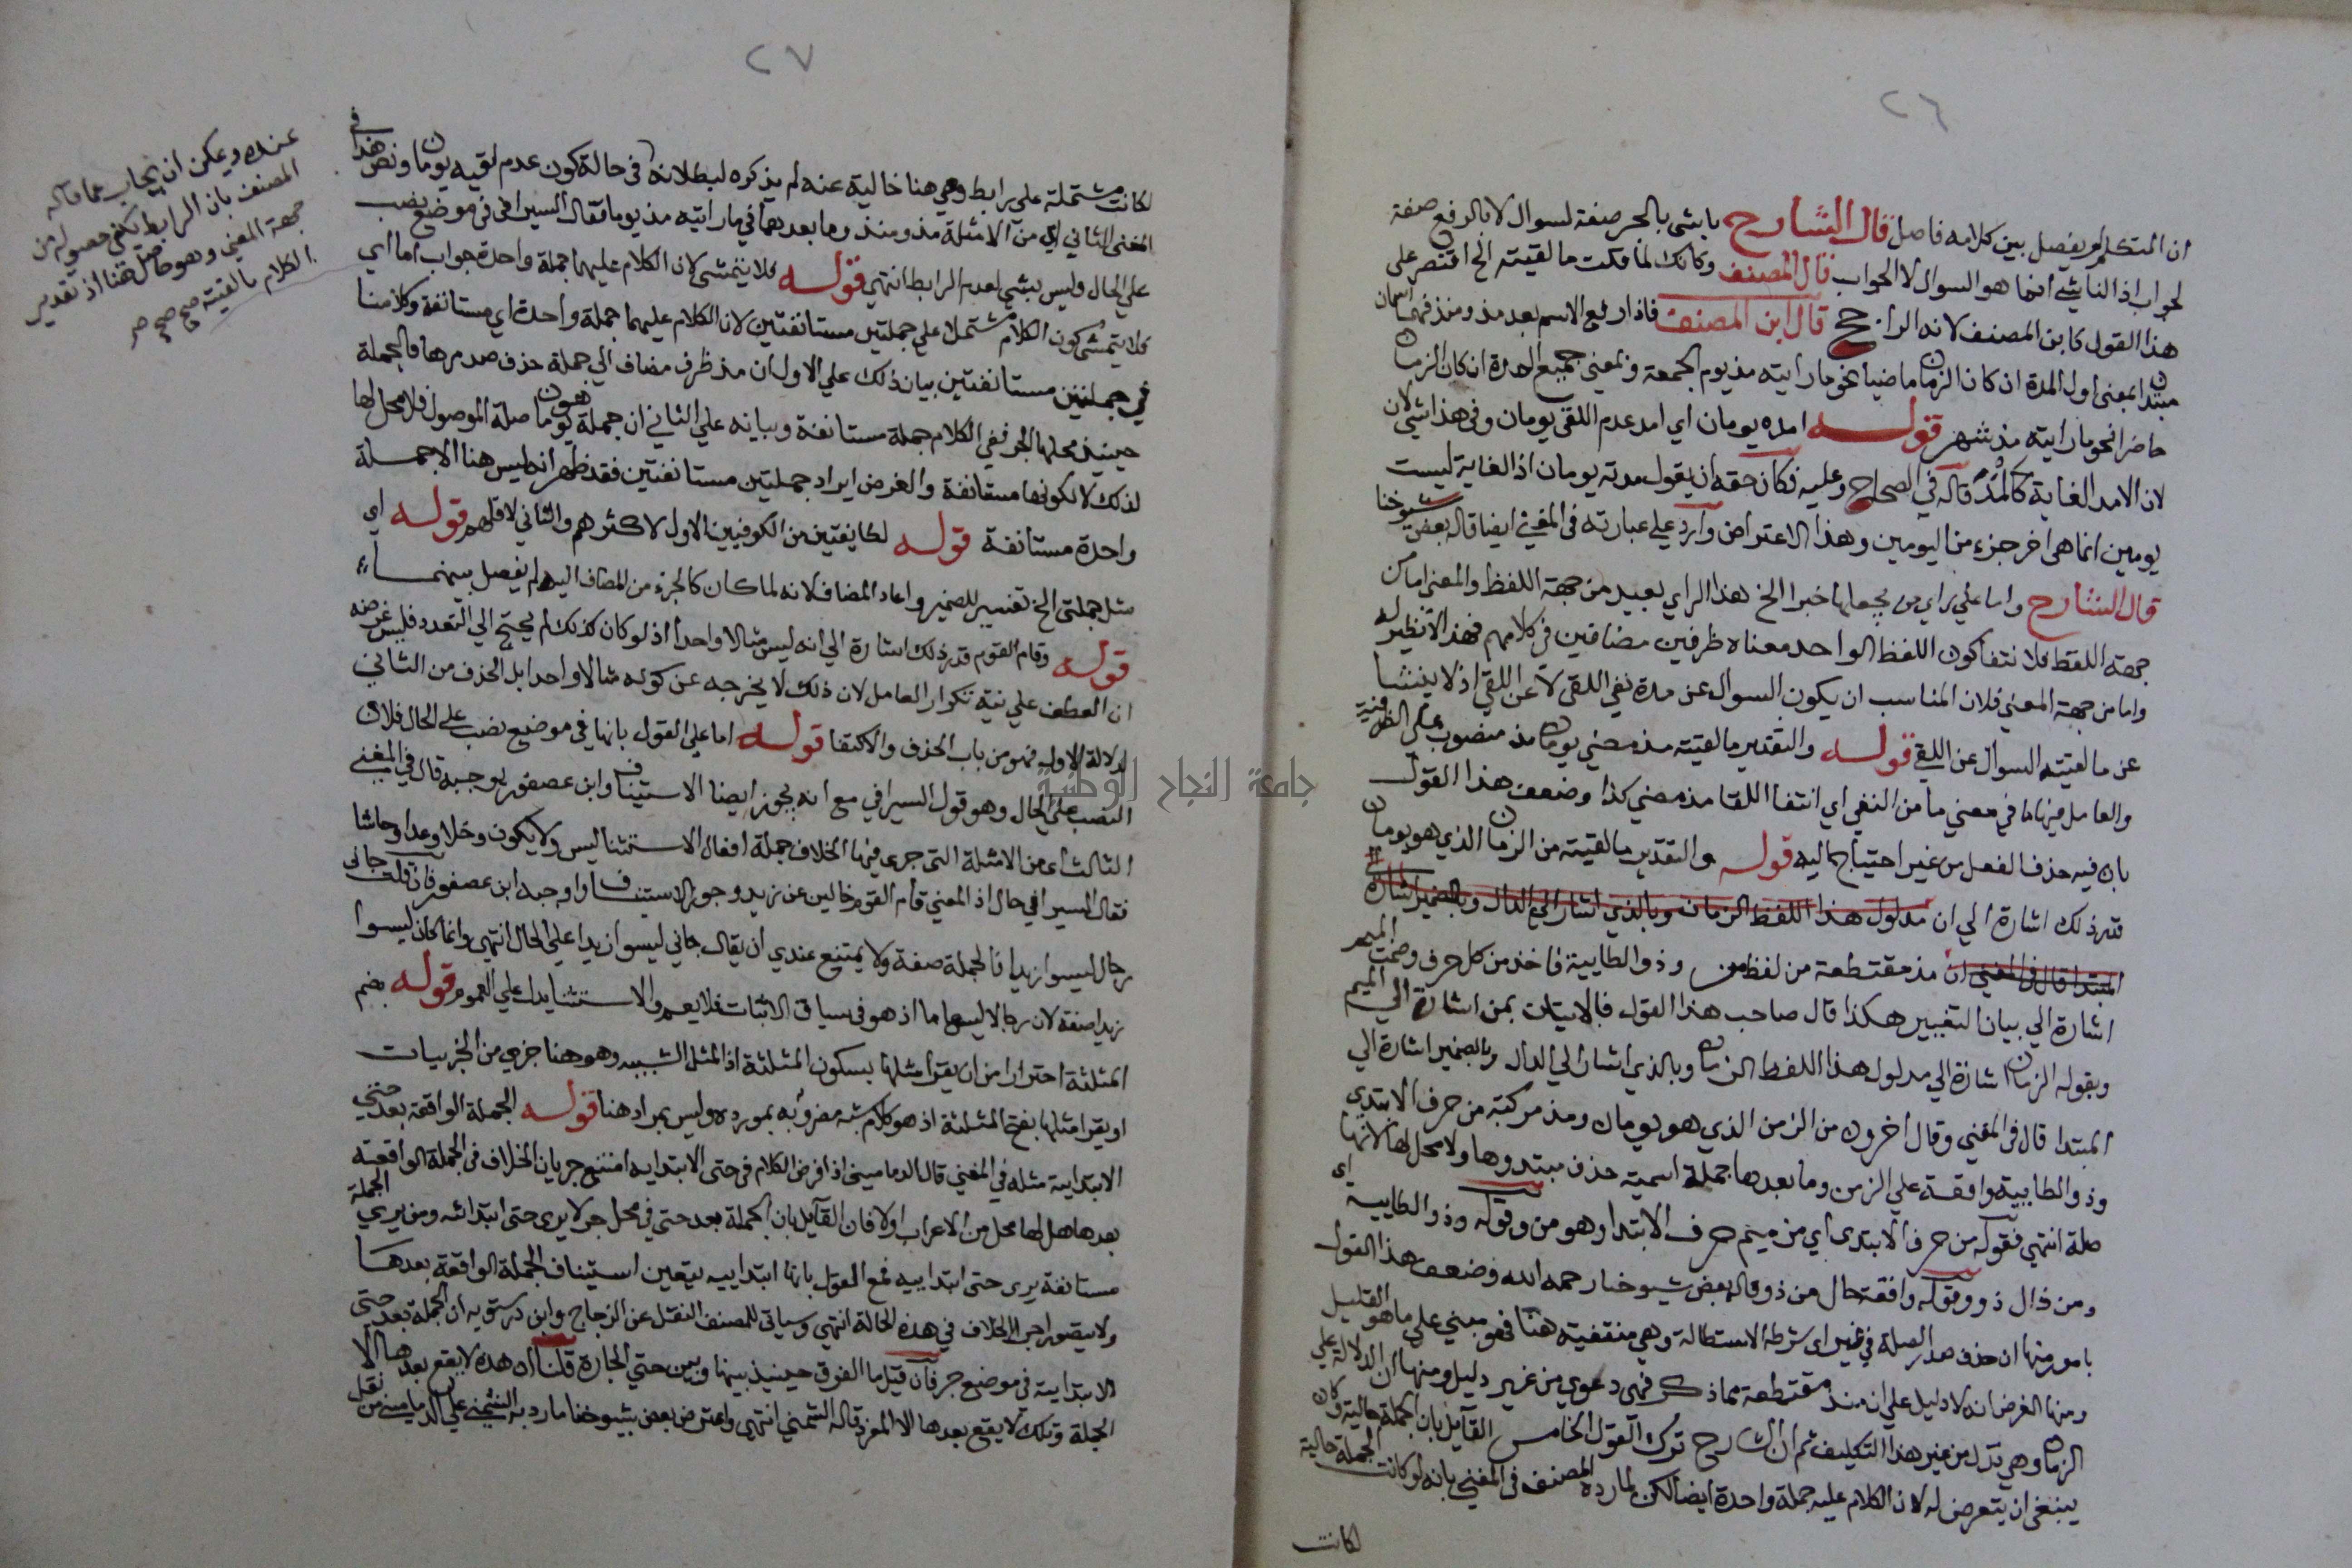 ٢٦
ان المتكلم لم يفصل بين كلامه فاصل قال الشارح باشئ بالجر صفة لسوال لا بالرفع صفة
لجواب اذ الناشئ انما هو السوال لا الجواب قال المصنف وكانك لما قلت ما لقيته الخ اقتصر على
هذا القول كابن المصنف لانه الراجح قال ابن المصنف فاذا رفع الاسم بعد مذ ومنذ فهما اسمان
مبتدا بمعنى اول المدة ان كان الزمان ماضيا نحو ما رايته مذ يوم الجمعة وبمعنى جميع المدة ان كان الزمان
حاضرا نحو ما رايته مذ شهر قوله امده يومان اي امد عدم اللقى يومان وفي هذا شئ لان
لان الامد الغاية كالمد قاله في الصحاح وعليه فكان حقه ان يقول مدته يومان اذ الغاية ليست
يومين انما هي اخر جزء من اليومين وهذا الاعتراض وارد على عبارته في المغني ايضا قاله بعض شيوخنا
قال الشارح واما على راي من يجعلها خبرا الخ هذا الراي بعيد من جهة اللفظ والمعنى اما من
جهة اللفظ فلانتفا كون اللفظ الواحد معناه ظرفين مضافين في كلامهم فهذا لا نظير له
واما من جهة المعنى فلان المناسب ان يكون السوال عن مدة نفي اللقى لا عن اللقي اذ لا ينشا
عن ما لقيته السوال عن اللقي قوله والتقدير ما لقيته مذ مضي يومان مذ منصوب على الظرفية
والعامل فيها ما في معنى ما من النفي اي انتفا اللقا مذ مضي كذا وضعف هذا القول
بان فيه حذف الفعل من غير احتياج اليه قوله والتقدير ما لقيته من الزمان الذي هو يومان
قدر ذلك اشارة الي ان مدلول هذا اللفظ الزمان وبالذي اشار الي الدال وبالضمير اشارة
المبتدا قال في المغني ان مذ مقتطعة من لفظ من وذو الطايية فاخذ من كل حرف وضمت الميم
اشارة الي بيان التغيير هكذا قال صاحب هذا القول فالاتيان بمن اشارة الي الميم
وبقوله الزمان اشارة الي مدلول هذا اللفظ الزمان وبالذي اشار الي الدال وبالضمير اشارة الي
المبتدا قال في المغني وقال اخرون من الزمن الذي هو يومان ومذ مركبة من حرف الابتدي
وذو الطايية واقعة علي الزمن وما بعدها جملة اسمية حذف مبتدوها ولا محل لها لانها
صلة انتهي فقوله من حرف الابتدي اي من ميم حرف الابتدا وهو من وقوله وذو الطايية اي
ومن ذال ذو وقوله واقعة حال من ذو قاله بعض شيوخنا رحمه الله وضعف هذا القول
بامور منها ان حذف صدر الصلة في غير اي شرطه الاستطالة وهي منتفية هنا فهو مبني علي ما هو القليل
ومنها الغرض انه لا دليل علي ان منذ مقتطعة مما ذكر فهي دعوي من غير دليل ومنها ان الدلالة علي
الزمان وهي تدل من غير هذا التكليف ثم ان الشارح ترك القول الخامس القايل بان الجملة حالية وكان
ينبغي ان يتعرض له لان الكلام عليه جملة واحدة ايضا لكن لما رده المصنف في المغني بانه لو كانت الجملة حالية
لكانت
٢٧
لكانت مشتملة على رابط وهي هنا خالية عنه لم يذكره لبطلانه في حالة كون عدم لقيه يومان ونص هذا في
المغني الثاني اي من الامثلة مذ ومنذ وما بعدهما في ما رايته مذ يومان فقال السيرافي في موضع نصب
علي الحال وليس بشي لعدم الرابط انتهي قوله فلا يتمشى لان الكلام عليهما جملة واحدة جواب اما اي
فلا يتمشى كون الكلام مشتملا علي جملتين مستانفتين لان الكلام عليهما جملة واحدة اي مستانفة وكلامنا
في جملتين مستانفتين بيان ذلك علي الاول ان مذ ظرف مضاف الي جملة حذف صدرها فالجملة
حينيذ محلها الجر ففي الكلام جملة مستانفة وبيانه علي الثاني ان جملة هو يومان صلة الموصول فلا محل لها
لذلك لا لكونها مستانفة والغرض ايراد جملتين مستانفتين فقد ظهر انه ليس هنا الا جملة
واحدة مستانفة قوله لطايفتين من الكوفيين الاول لاكثرهم والثاني لاقلهم قوله اي
مثل جملتي الخ تفسير للضمير واعاد المضاف لانه لما كان كالجزء من المضاف اليه لم يفصل بينهما
قوله وقام القوم قدر ذلك اشارة الي انه ليس مثالا واحدا اذ لو كان كذلك لم يحتج الي التعدد فليس غرضه
ان العطف علي نية تكرار العامل لان ذلك لا يخرجه عن كونه مثالا واحدا بل الحذف من الثاني
لدلالة الاول فهو من باب الحذف والاكتفا قوله اما علي القول بانها في موضع نصب علي الحال فلان
النصب علي الحال وهو قول السيرافي مع انه يجوز ايضا الاستيناف وابن عصفور يوجبه قال في المغني
الثالث اي من الامثلة التي جري فيها الخلاف جملة افعال الاستثنا ليس ولا يكون وخلا وعدا وحاشا
فقال السيرافي حال اذ المعني قام القوم خالين عن زيد وجوز الاستيناف واوجبه ابن عصفور فان قلت جاني
رجال ليسوا زيدا فالجملة صفة ولا يمتنع عندي ان يقال جاني ليسوا زيدا علي الحال انتهي وانما كان ليسوا
زيدا صفة لان رجالا ليس عاما اذ هو في سياق الاثبات فلا يعم والاستثنا يدل علي العموم قوله بضم
المثلثة احترازا من ان يقرا مثلها بسكون المثلثة اذ المثل الشبيه وهو هنا جزي من الجزييات
او يقرا مثلها بفتح المثلثة اذ هو كلام شبه مضروبه بمورده وليس بمراد هنا قوله الجملة الواقعة بعد حتي
الابتدايية مثله في المغني قال الدماميني اذا فرض الكلام في حتى الابتداييه امتنع جريان الخلاف في الجملة الواقعة
بعدها هل لها محل من الاعراب اولا فان القايل بان الجملة بعد حتي في محل جر لا يرى حتى ابتدائه ومن يري الجملة
مستانفة يرى حتى ابتداييه فمع القول بانها ابتداييه يتعين استيناف الجملة الواقعة بعدها
ولا يتصور اجرا الخلاف في هذه الحالة انتهي وسياتي للمصنف النقل عن الزجاج وابن درستويه ان الجملة بعد حتي
الابتدايية في موضع جر فان قيل ما الفرق حينيذ بينها وبين حتي الجارة قلنا ان هذه لا يقع بعدها الا
الجملة وتلك لا يقع بعدها الا المفرد قاله الشمني انتهي واعترض بعض شيوخنا ما رد به الشمني علي الدماميني من نقل
عنده ويمكن ان يجاب عما قاله
المصنف بان الرابط يكفي حصوله من
جهة المعني وهو حاصل هنا اذ تقدير
الكلام ما لقيته صح صح صح
جامعة النجاح الوطنية